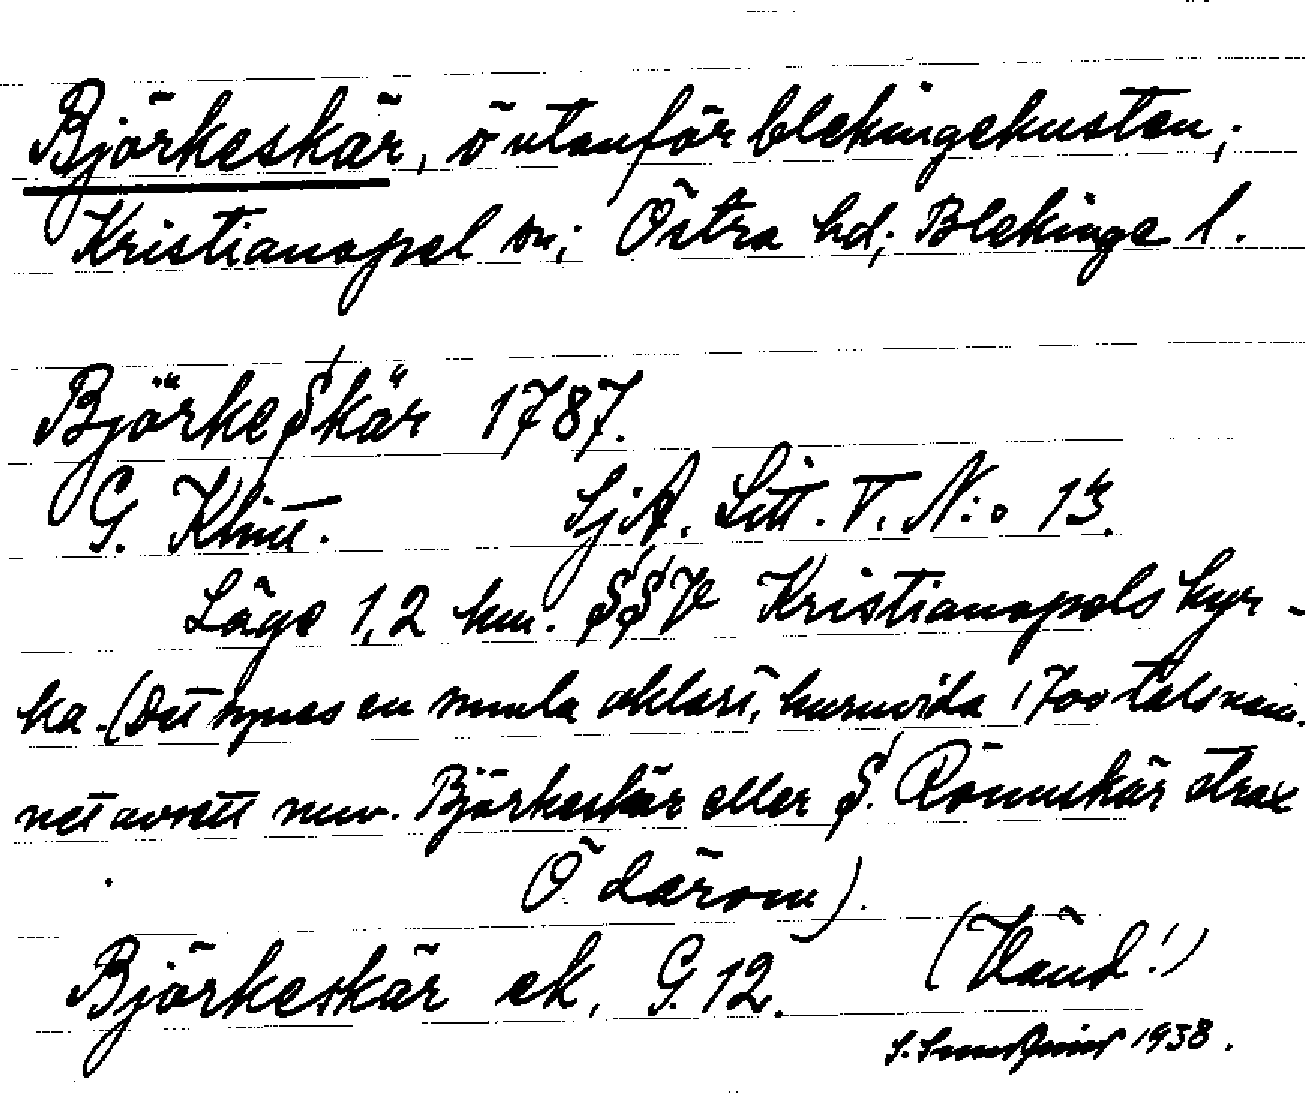 Björkeskär, ö utanför blekingekusten;
Kristianopel sn; Östra hd; Blekinge l.
Björkeskär 1787.
G. Klint. SjA. Litt. V. N:o 13.
Läge 1,2 km. SSV Kristianopels kyr-
ka. (Det synes en smula oklart, huruvida 1700talsnam-
net avsett nuv. Björkeskär eller S. Rönnskär strax
Ö därom).
Björkeskär ek. G. 12. (Vänd!)
1938.